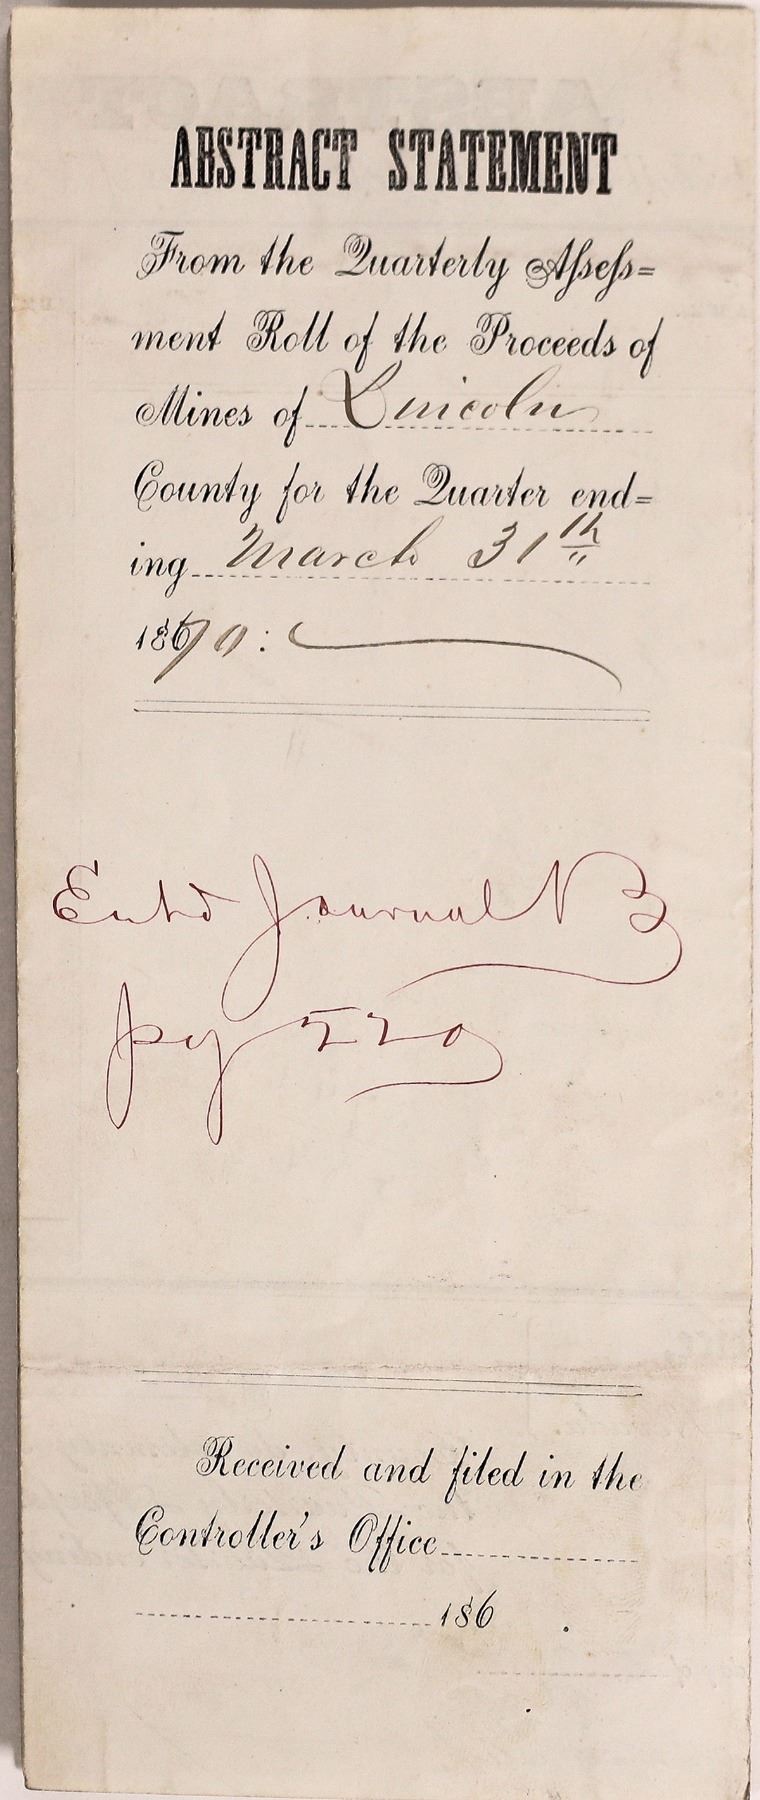 ABSTRACT STATEMENT
From the Quarterly Assess=
ment Roll of the Proceeds of
Mines of Lincoln
County for the Quarter end=
ing March 31th
1870:
Entd Journal B
pg 520
Received and filed in the
Controller's Office
186 .